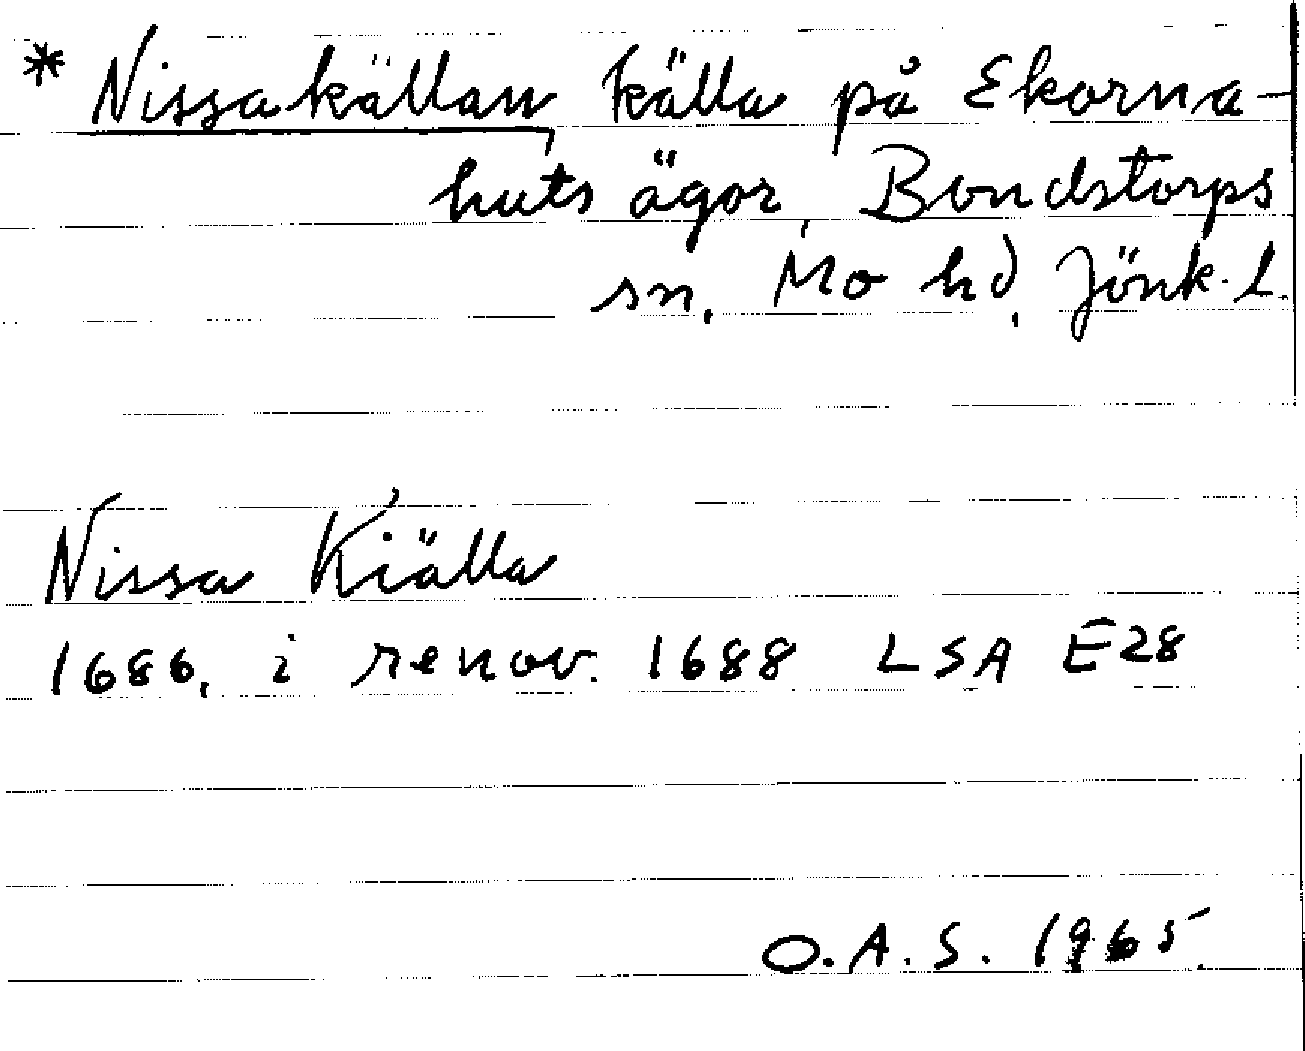 * Nissakällan, källa på Ekorna-
huts ägor, Bondstorps
sn, Mo hd, Jönk. l.
Nissa Kiälla
1686, i renov. 1688 LSA E28
O.A.S. 1965.